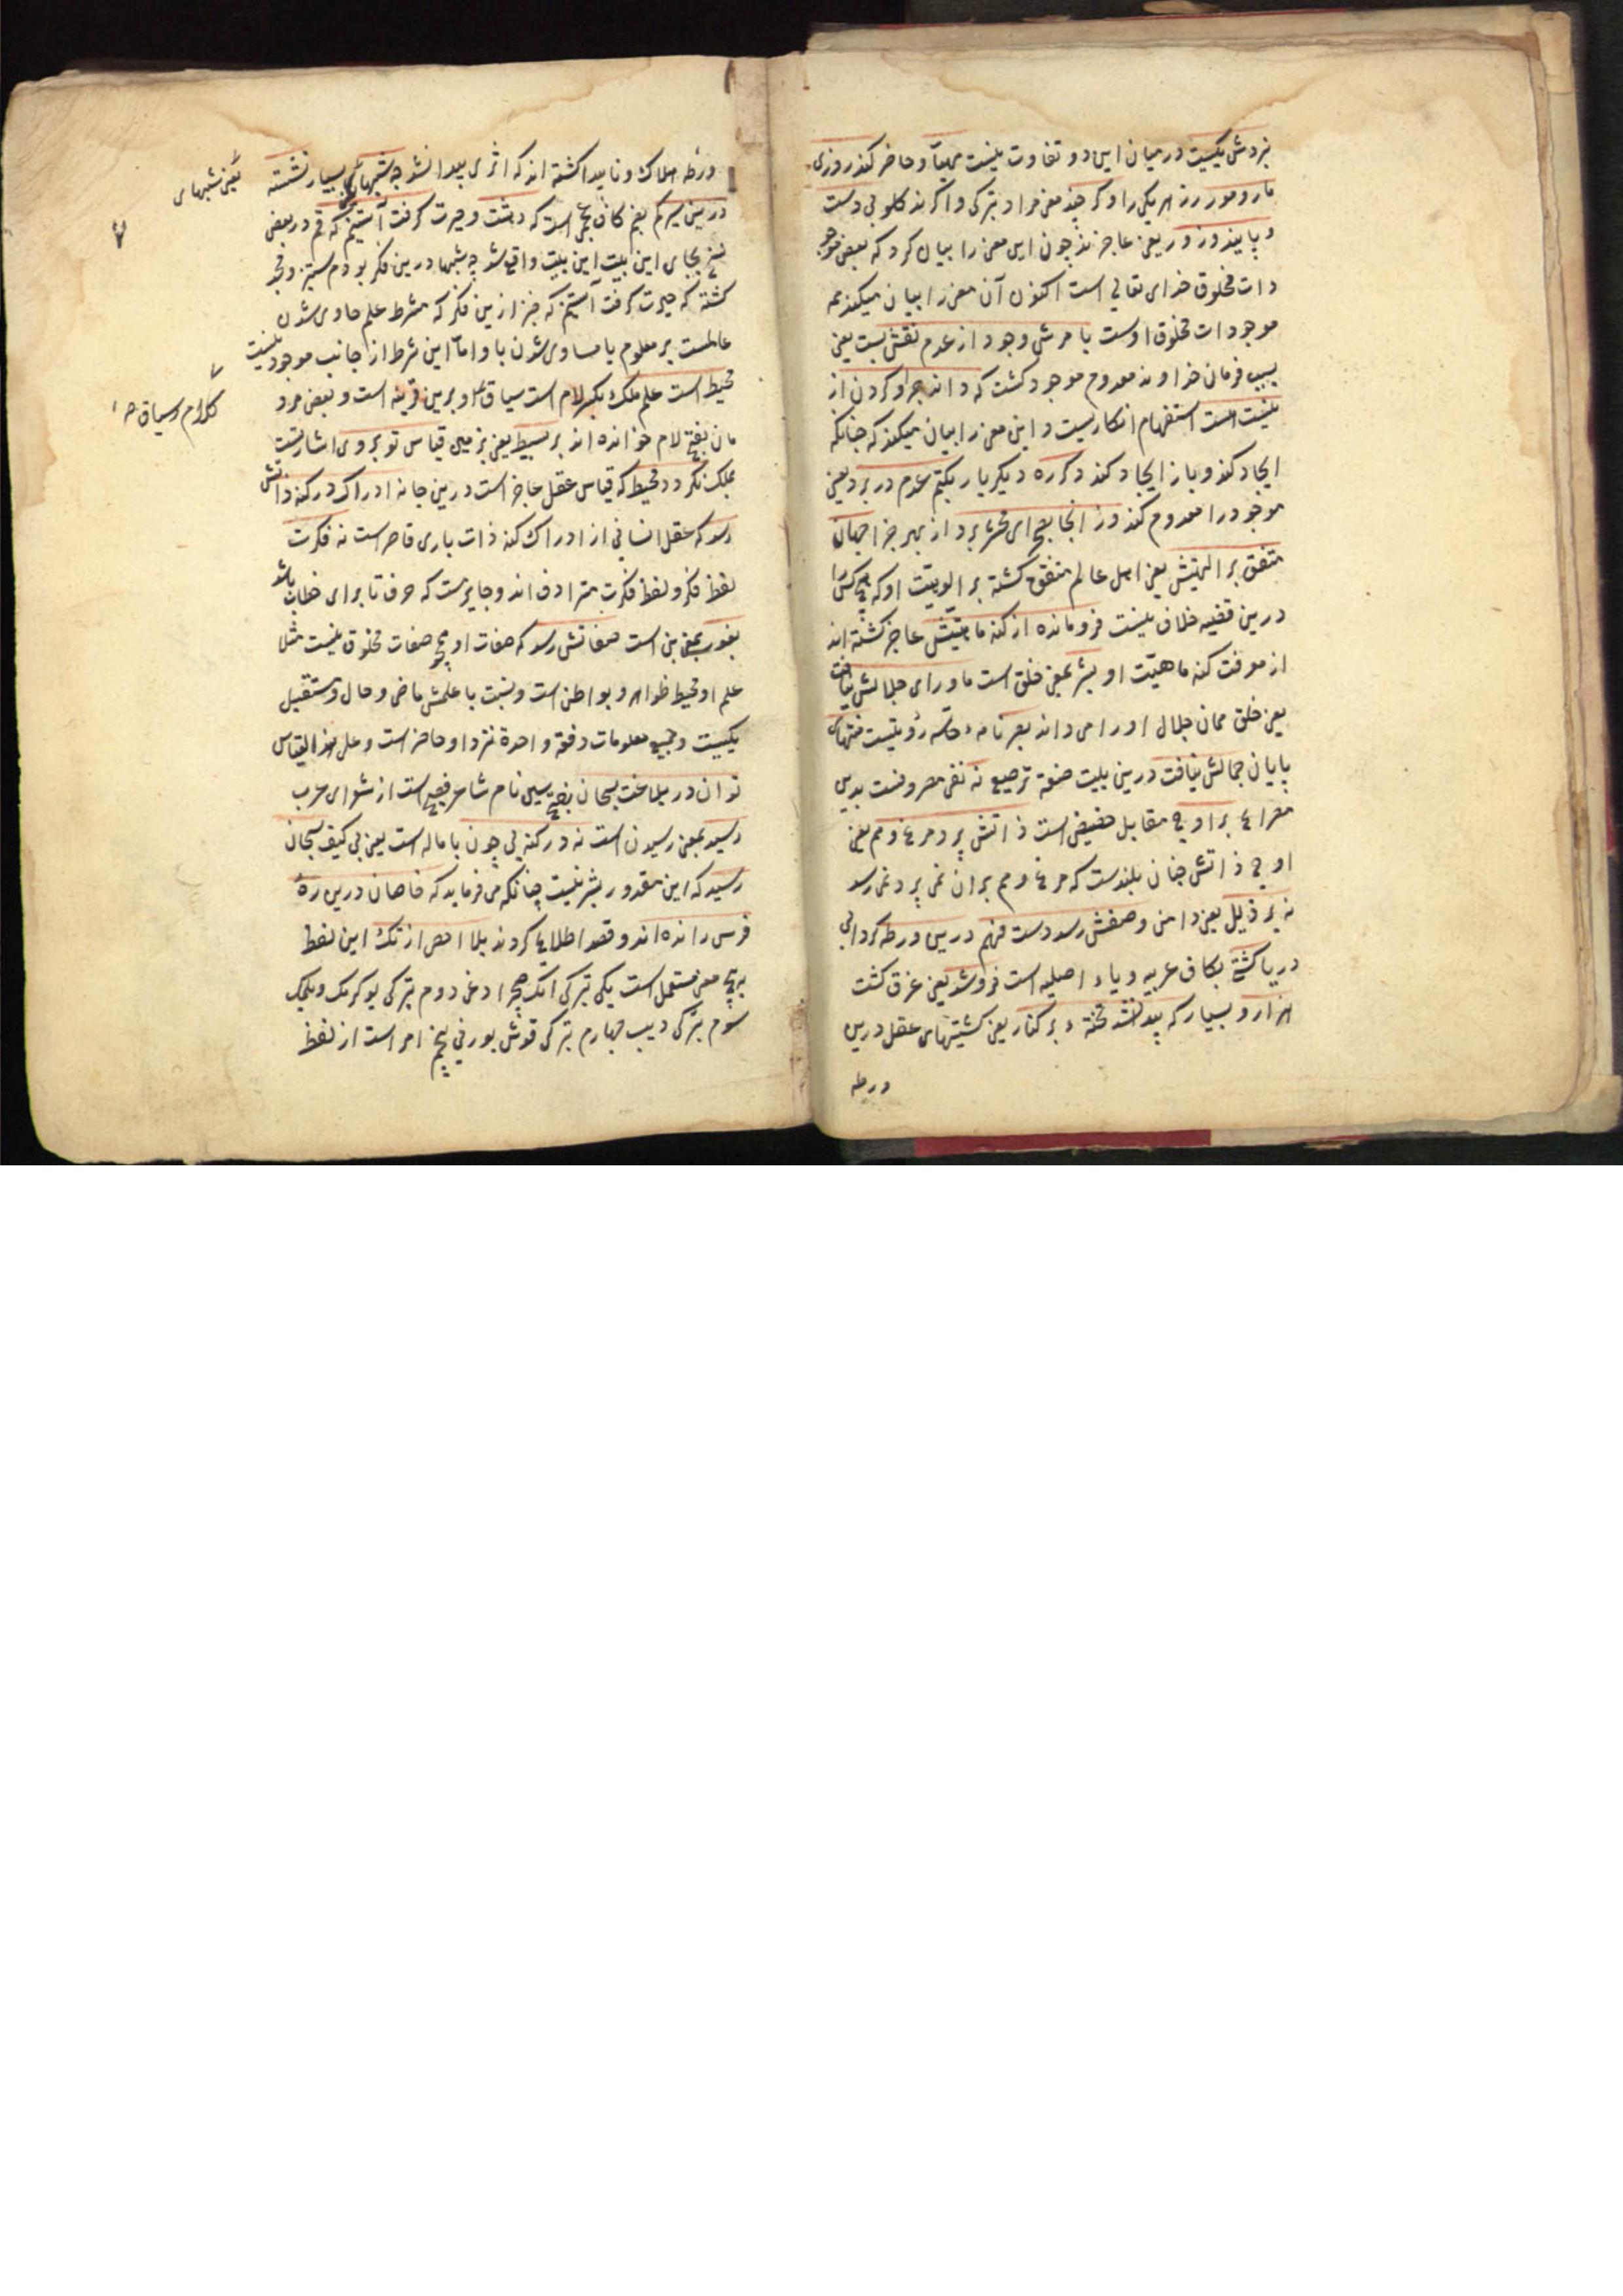 نزدش یکیست در میان این دو تفاوت نیست مهیا و حاضر کند روزی
مار و مور رزق هر یکی را و کر چند معنی مراد بترکی و اکر نه کلو بی دست
و پایند و زور یعنی عاجزند چون این معنی را بیان کرد که بعضی موجو
دات مخلوق خدای تعالی است اکنون آن معنی را بیان میکند همه
موجودات مخلوق اوست بامرش وجود از عدم نقش بست یعنی
بسبب فرمان خداوند معدوم موجود کشت که داند جز او کردن از
نیست هست استفهام انکاریست و این معنی را بیان میکند که چنانکه
ایجاد کند و باز ایجاد کند دکر ره دیکر بار بکتم عدم در برد یعنی
موجود را معدوم کند وز انجا بصحرای محشر برد از بهر جزا جهان
متفق بر الهیتش یعنی اهل عالم متفق کشته بر الوهیت او که هیچ کس را
درین قضیه خلاف نیست فرومانده از کنه ماهیتش عاجز کشته اند
از معرفت کنه ماهیت او بشر بمعنی خلق است ماورای جلالش نیافت
یعنی خلق همان جلال اورا می داند بصر نامهٔ حاسهٔ رؤیتست منتهای
پایان جمالش نیافت درین بیت صنعة ترصیع نه نفی مصروفست بدین
مصراع بر اوج مقابل حضیض است ذاتش پرد مرغ وهم یعنی
اوج ذاتش چنان بلندست که مرغ وهم بران نمی پرد نمی رسد
نه بر ذیل یعنی دامن وصفش رسد دست فهم درین ورطه کردابی
دریا کشتی بکاف عربیه و یاء اصلیه است فروشد یعنی غرق کشت
هزار و بسیار که پیدا نشد تختهٔ بر کنار یعنی کشتیهای عقل درین
ورطه
ورطهٔ هلاک و ناپیدا کشته اند که اثری پیدا نشد چه شبهای بسیار نشسته
یعنی شبهای
درین سیر کم بضم کاف عجمی است که دهشت و حیرت کرفت آستینم که قم در بعضی
نسخ بجای این بیت این بیت واقع شد چه شبها درین فکر بودم سیر و فجر
کشته که حیرت کرفت آستینم که خبر ازین فکر که شرط علم حاوی شدن
عالمست بر معلوم یا مساوی شدن با او اما این شرط از جانب موجود نیست
محیط است علم ملک بکسر لام است سیاق او برین قرینه است و بعضی مرد
مان بفتح لام خوانده اند بر بسیط یعنی بر زمین قیاس تو بر وی اشارتست
بملک نکردد محیط که قیاس عقل عاجز است درین جا نه ادراک در کنه ذاتش
رسد که عقل انسانی از ادراک کنه ذات باری قاصر است نه فکرت
لفظ فکر و لفظ فکرت مترادف اند و جایزست که حرف تا برای خطاب باشد
بغور بمعنی بن است صفاتش رسد که صفات او همچو صفات مخلوق نیست مثلا
علم او محیط ظواهر و بواطن است و نسبت با علمش ماضی و حال و مستقبل
یکیست و جمیع معلومات دفعة واحدة نزد او حاضر است و علی هذا القیاس
توان در بلاغت بسحبان بفتح سین نام شاعر فصیح است از شعرای عرب
رسید بمعنی رسیدن است نه در کنه بی چون با ماله است یعنی بی کیف سبحان
رسید که این مقدور بشر نیست چنانکه می فرماید که خاصان درین ره
فرس رانده اند و قصد اطلاع کردند بلا احصی از تک این لفظ
بر پنج معنی مستعمل است یکی بترکی دوم بترکی یوکرمک
سوم بترکی دیب چهارم بترکی قوش بورنی پنجم امر است از لفظ